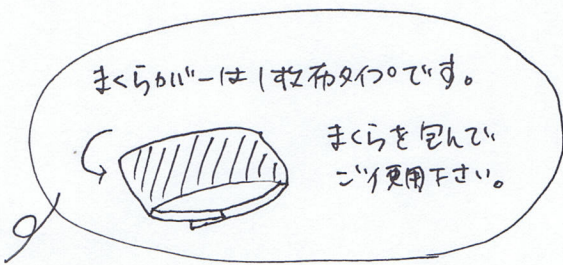 まくらカバーは1枚布タイプです。
まくらを包んで
ご使用下さい。